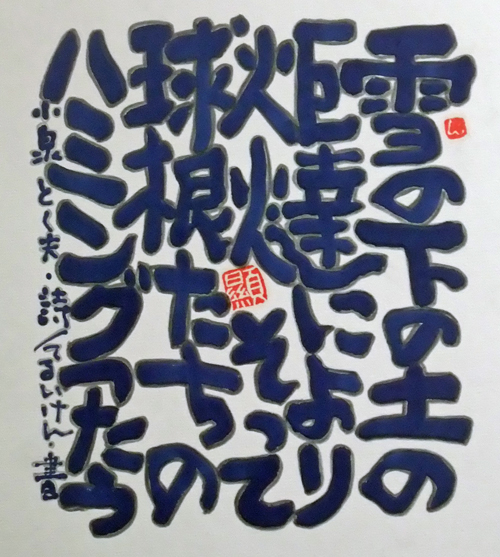 雪の下の土の
炬燵により
そって
球根たちの
ハミングったら
小泉とく夫・詩/てるいけん・書
顕